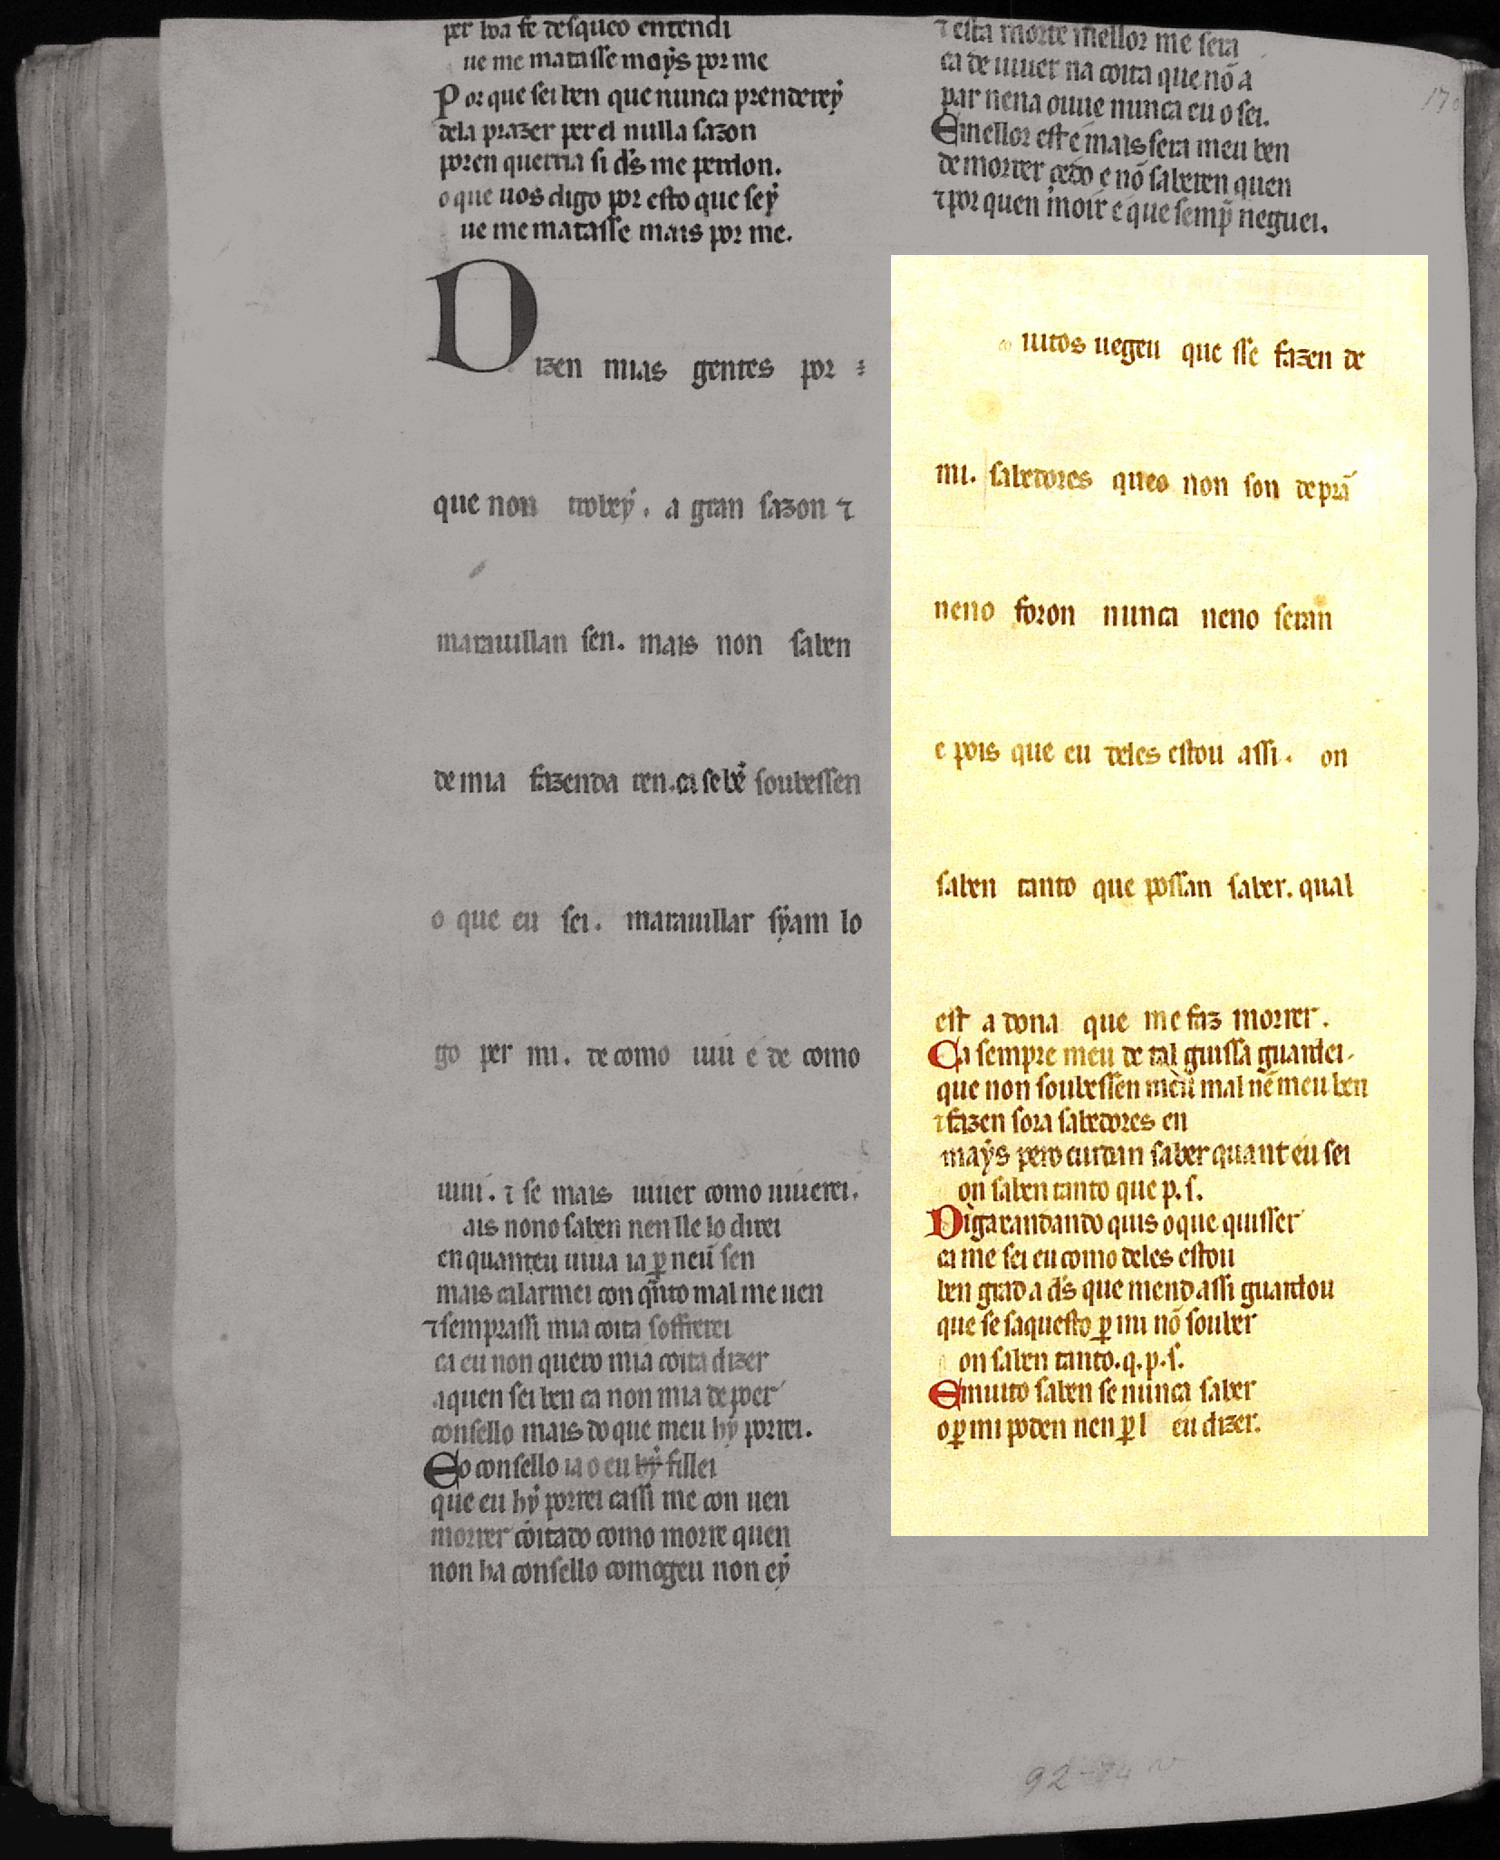 per boa fe desqueo entendi
ue me matasse moys por me
Por que sei ben que nunca prendereẏ
dela prazer per el nulla sazon
poren querria si d̃s me perdon.
o que uos digo por esto que seẏ
ue me matasse mais por me.
Dizen mias gentes por
que non trobeẏ. a gran sazon ⁊
marauillan sen. mais non saben
de mia fazenda ren. ca se bẽ soubessen
o que eu sei. marauillar sẏam lo
go per mi. de como uiui e de como
uiui. ⁊ se mais uiuer como uiuerei.
ais nono saben nen lle lo direi
en quanteu uiua ia ꝑ neũ sen
mais calarmei con qñto mal me uen
⁊ semprassi mia coita soffrerei
ca eu non quero mia coita dizer
aquen sei ben ca non mia de poer
consello mais do que meu hẏ porrei.
E o consello ia o eu hẏ fillei
que eu hẏ porrei cassi me con uen
morrer coitado como morre quen
non ha consello comogeu non eẏ
⁊ esta morte mellor me sera
ca de uiuer na coita que nõ a
par nena ouue nunca eu o sei.
E mellor est e mais sera meu ben
de morrer cedo e nõ saberen quen
⁊ por quen moir e que semp̃ neguei.
uitos uegeu que sse fazen de
mi. sabedores queo non son de prã
neno foron nunca neno seran
e pois que eu deles estou assi. on
saben tanto que possan saber. qual
est a dona que me faz morrer.
Ca sempre meu de tal guissa guardei.
que non soubessen meu mal nẽ meu ben
⁊ fazen sora sabedores en
maẏs pero cuidan saber quant eu sei
on saben tanto que p. s.
Digaxandando quis o que quisser
ca me sei eu como deles estou
ben grad a d̃s que mend assi guardou
que se saquesto ꝑ mi nõ souber
on saben tanto. q. p. s.
E muito saben se nunca saber
o ꝑ mi poden nen ꝑ l eu dizer.
92